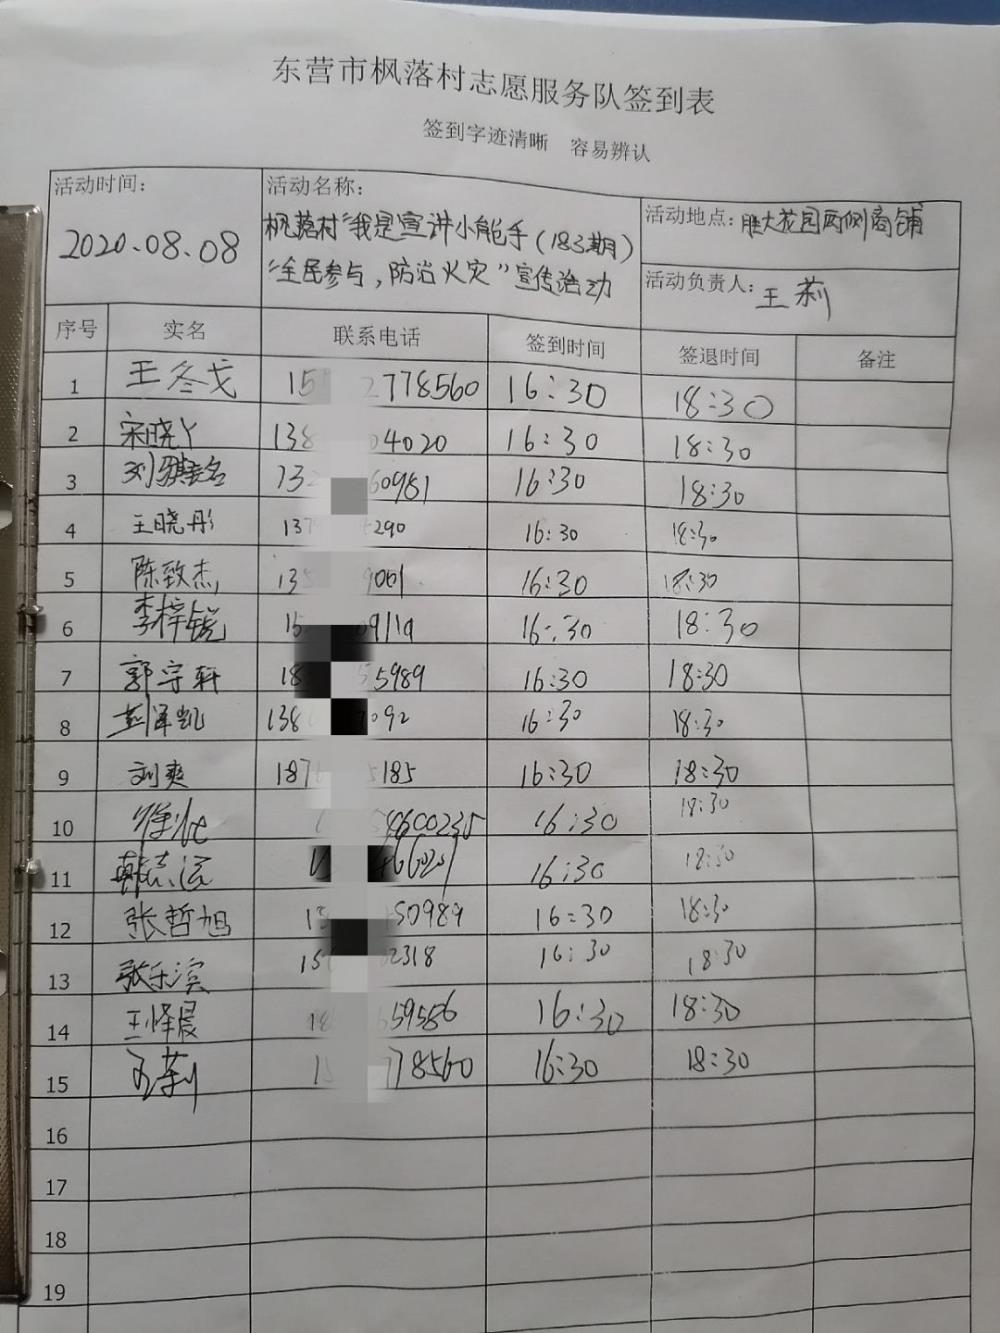 东营市枫落村志愿服务队签到表
签到字迹清晰 容易辨认
活动时间：
2020.08.08
活动名称：
枫落村“我是宣讲小能手（183期）
“全民参与，防治火灾”宣传活动
活动地点：胜大花园两侧商铺
活动负责人：王莉
序号 实名 联系电话 签到时间 签退时间 备注
1 王冬戈 15 2778560 16:30 18:30
2 宋晓丫 138 04020 16:30 18:30
3 刘骐名 132 60981 16:30 18:30
4 王晓彤 137 290 16:30 18:30
5 陈致杰 13 9001 16:30 18:30
6 李梓锐 15 09119 16:30 18:30
7 郭守轩 18 55989 16:30 18:30
8 彭泽凯 138 092 16:30 18:30
9 刘爽 187 5185 16:30 18:30
10 4600235 16:30 18:30
11 16:30 18:30
12 张哲旭 15 50989 16:30 18:30
13 张乐滨 15 02318 16:30 18:30
14 王怿晨 18 659586 16:30 18:30
15 王莉 15 778560 16:30 18:30
16
17
18
19